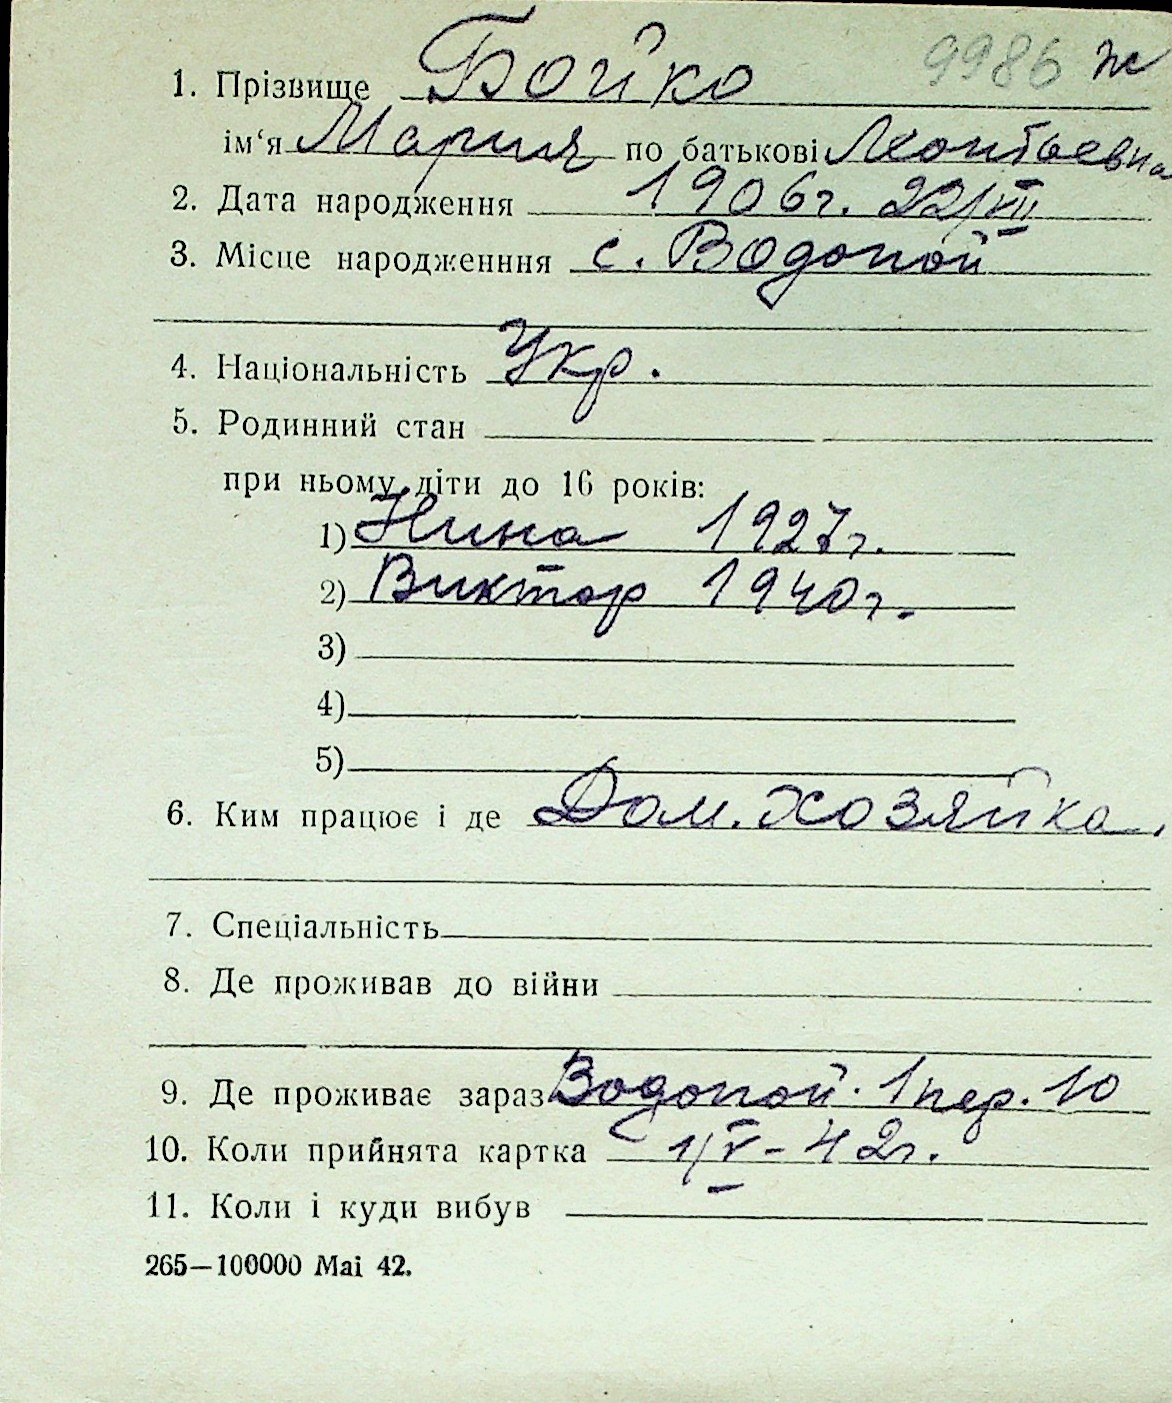 9986 ж
1. Прізвище Бойко
ім‘я Мария по батькові Леонтьевна
2. Дата народження 1906г. 22/VII
3. Місце народженння с. Водопой
4. Національність Укр.
5. Родинний стан
при ньому діти до 16 років:
1) Нина 1927г.
2) Виктор 1940г.
3)
4)
5)
6. Ким працює і де Дом. хозяйка.
7. Спеціальність
8. Де проживав до війни
9. Де проживає зараз Водопой. 1 пер. 10
10. Коли прийнята картка 1/V-42г.
11. Коли і куди вибув
265—100000 Mai 42.